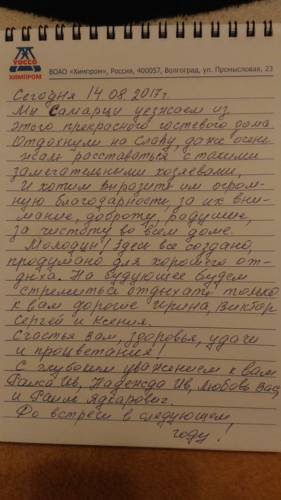 УОССО
ХИМПРОМ
ВОАО «Химпром», Россия, 400057, Волгоград, ул. Промысловая, 23
Сегодня 14.08.2017г
Мы Самарци уезжаем из
этого прекрасного гостевого дома
Отдохнули на Славу, даже очень
жаль расставаться с такими
замечательными хозяевами,
И хотим выразить им огром-
ную благодарность за их вни-
мание, доброту, радушие,
за чистоту во всём доме.
Молодцы! Здесь все создано,
продумано для хорошего от-
дыха. На будующее будем
стремиться отдыхать только
к вам дорогие Ирина, Виктор
Сергей и Ксения.
Счастья Вам, здоровья, удачи
и процветания!
С глубоким уважением к вам
Ив, Надежда Ив, Любовь Вас
и Фаиль
До встречи в следующем
году!